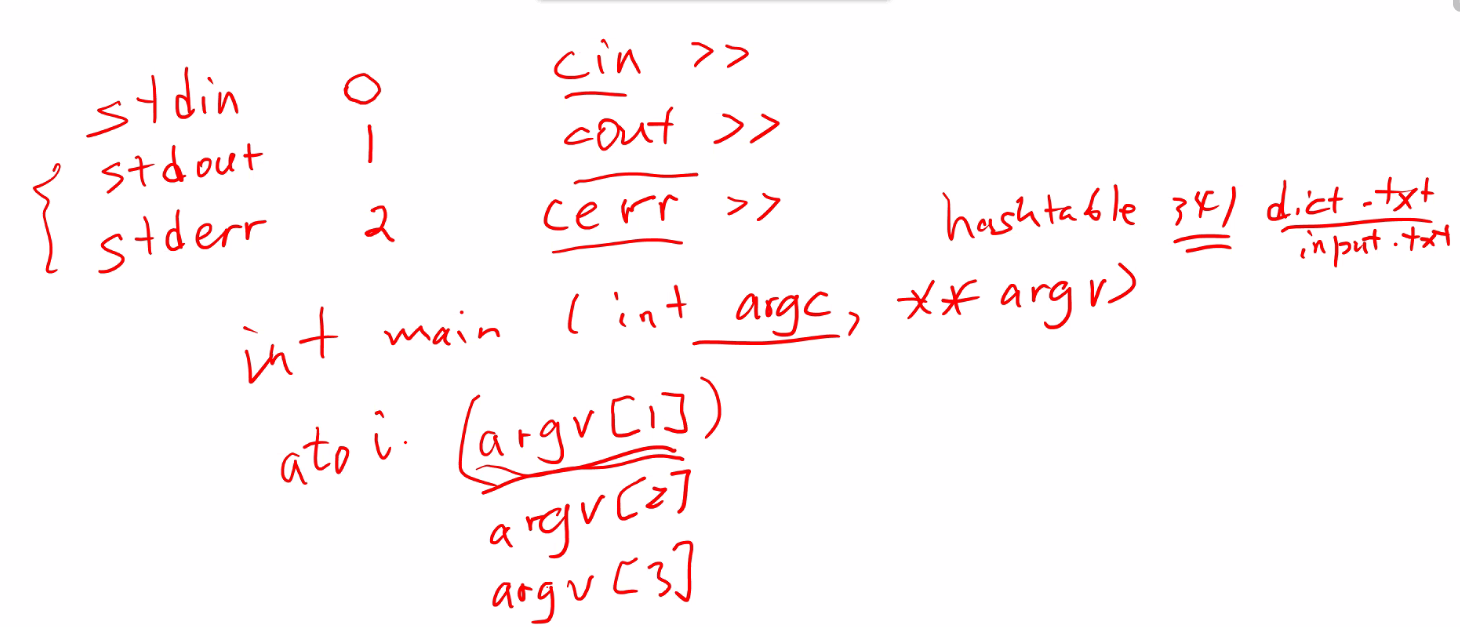 stdin 0 cin >>
stdout 1 cout >>
stderr 2 cerr >>
hashtable 341 dict.txt
input.txt
int main (int argc, ** argv)
atoi (argv[1])
argv[2]
argv[3]